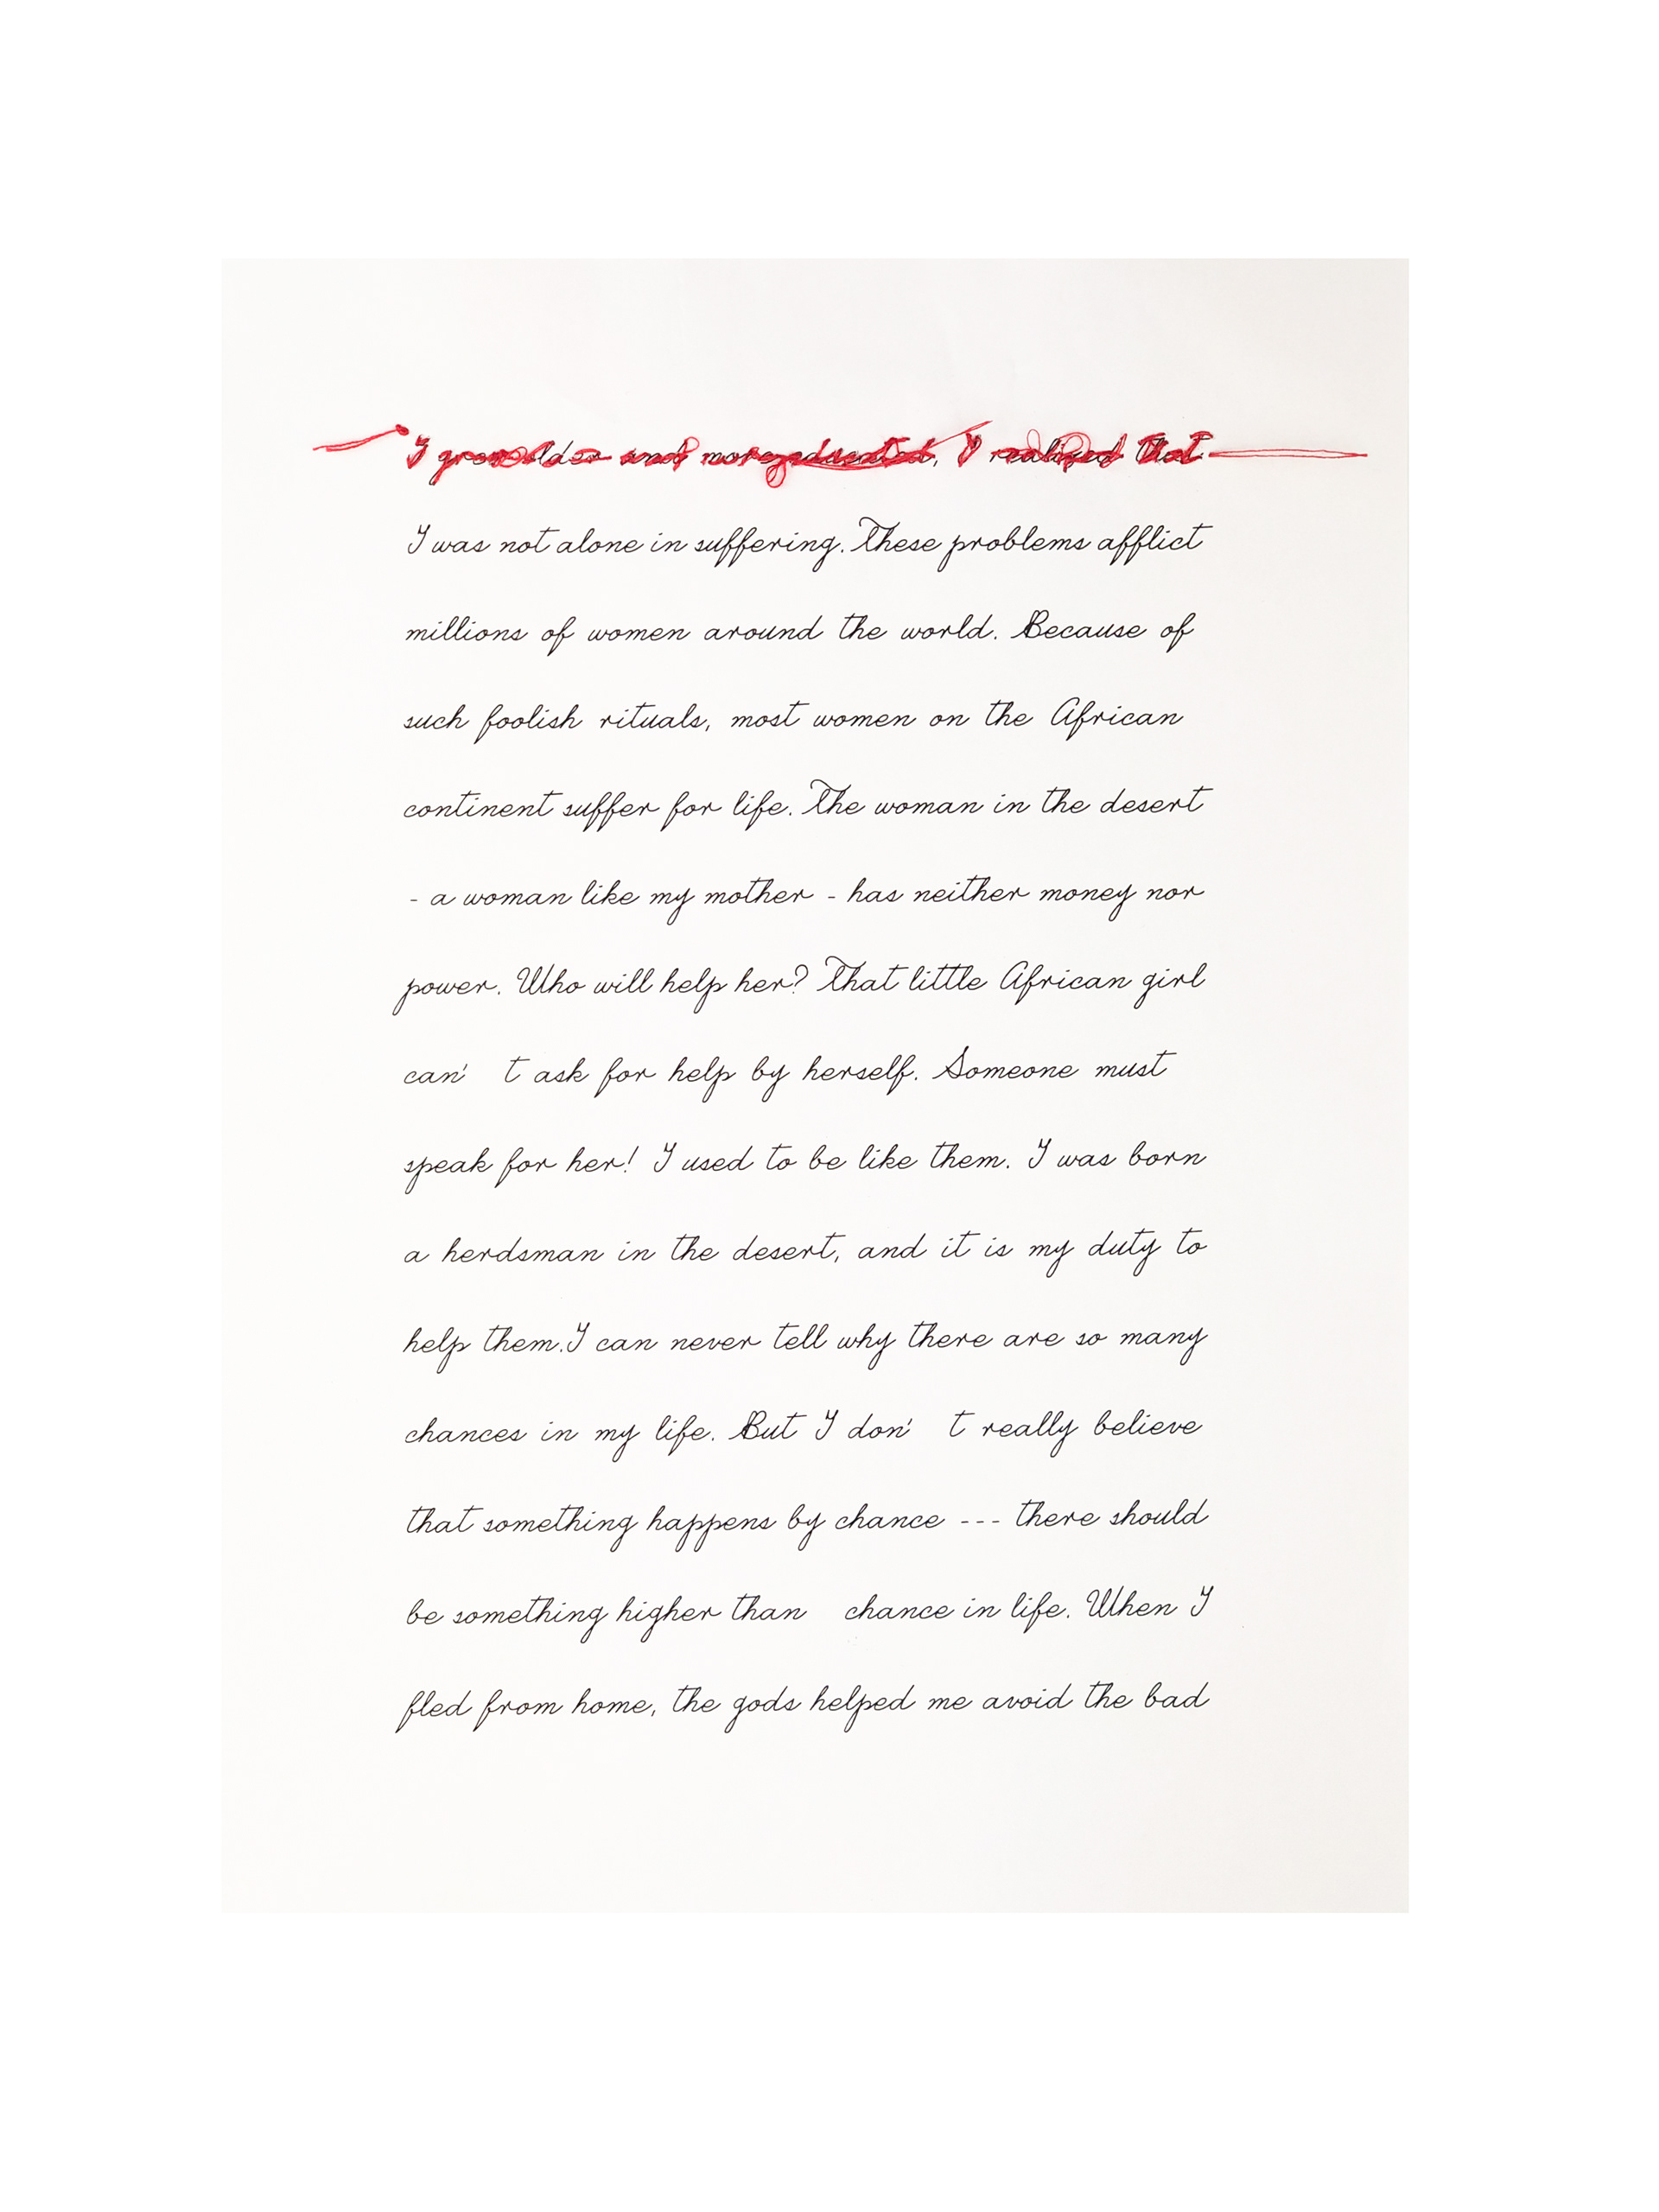 I grew older and more educated, I realized that
I was not alone in suffering. These problems afflict
millions of women around the world. Because of
such foolish rituals, most women on the African
continent suffer for life. The woman in the desert
- a woman like my mother - has neither money nor
power. Who will help her? That little African girl
can' t ask for help by herself. Someone must
speak for her! I used to be like them. I was born
a herdsman in the desert, and it is my duty to
help them.I can never tell why there are so many
chances in my life. But I don' t really believe
that something happens by chance --- there should
be something higher than chance in life. When I
fled from home, the gods helped me avoid the bad